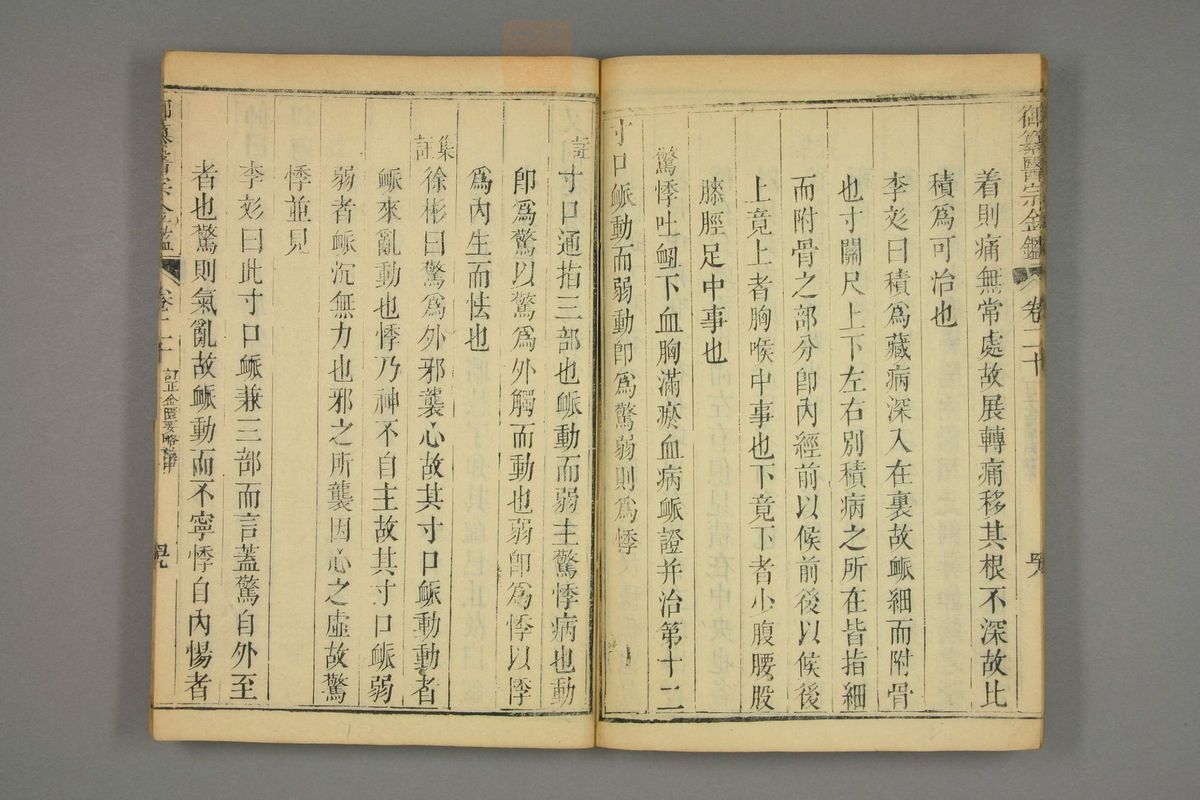 御纂醫宗金鑑 卷二十
着則痛無常處故展轉痛移其根不深故比
積爲可治也
李彣曰積爲藏病深入在裏故脈細而附骨
也寸關尺上下左右別積病之所在皆指細
而附骨之部分卽內經前以候前後以候後
上竟上者胸喉中事也下竟下者小腹腰股
膝脛足中事也
驚悸吐衄下血胸滿瘀血病脈證并治第十二
寸口脈動而弱動卽爲驚弱則爲悸
註寸口通指三部也脈動而弱主驚悸病也動
卽爲驚以驚爲外觸而動也弱卽爲悸以悸
爲內生而怯也
集註徐彬曰驚爲外邪襲心故其寸口脈動動者
脈來亂動也悸乃神不自主故其寸口脈弱
弱者脈沉無力也邪之所襲因心之虛故驚
悸並見
李彣曰此寸口脈兼三部而言蓋驚自外至
者也驚則氣亂故脈動而不寧悸自內惕者
御纂醫宗金鑑 卷二十 訂正金匱要略註